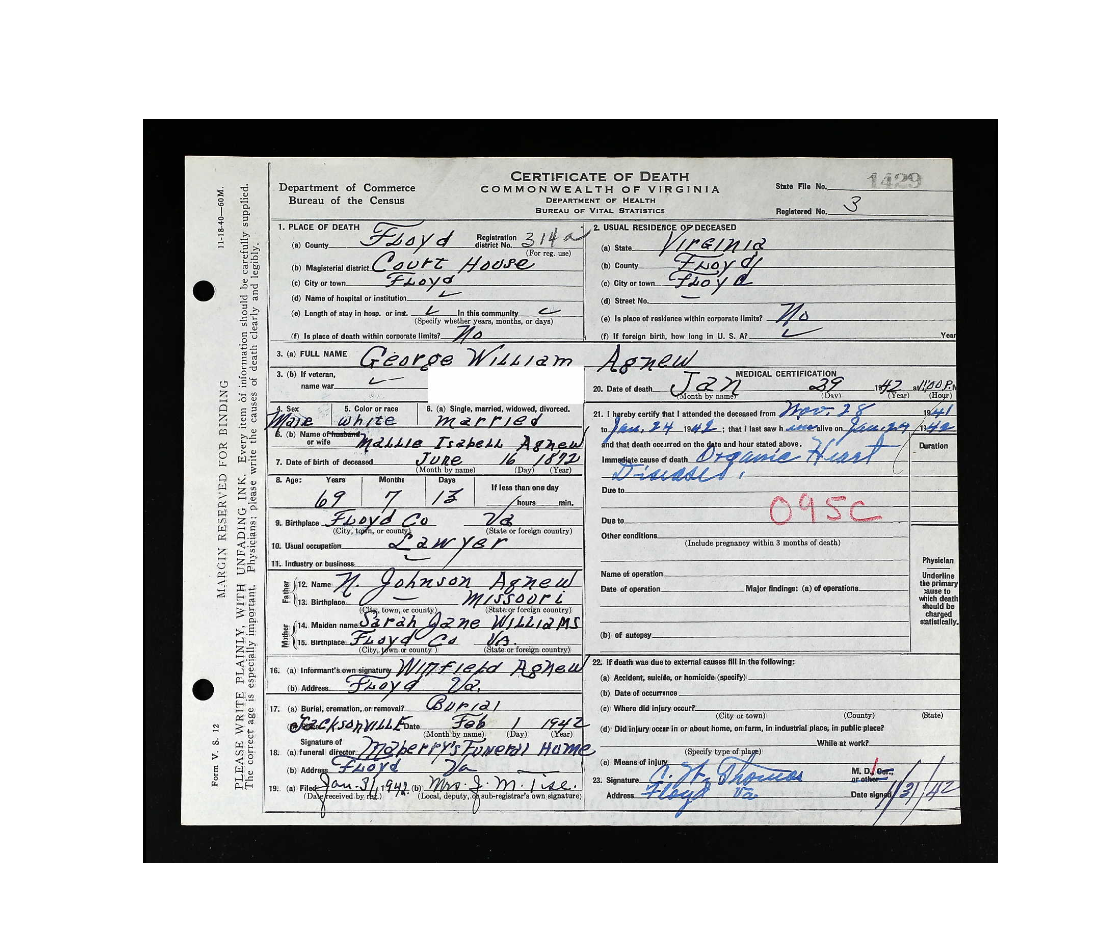 11-18-40—60M.
MARGIN RESERVED FOR BINDING
PLEASE WRITE PLAINLY, WITH UNFADING INK. Every item of information should be carefully supplied.
The correct age is especially important. Physicians: please write the causes of death clearly and legibly.
Form V. S. 12
CERTIFICATE OF DEATH
COMMONWEALTH OF VIRGINIA
DEPARTMENT OF HEALTH
BUREAU OF VITAL STATISTICS
Department of Commerce
Bureau of the Census
State File No. 1429
Registered No. 3
1. PLACE OF DEATH
(a) County Floyd Registration district No. 314a
(For reg. use)
(b) Magisterial district Court House
(c) City or town Floyd
(d) Name of hospital or institution
(e) Length of stay in hosp. or inst. In this community
(Specify whether years, months, or days)
(f) Is place of death within corporate limits? No
2. USUAL RESIDENCE OF DECEASED
(a) State Virginia
(b) County Floyd
(c) City or town Floyd
(d) Street No. —
(e) Is place of residence within corporate limits? No
(f) If foreign birth, how long in U. S. A? Year
3. (a) FULL NAME George William Agnew
3. (b) If veteran,
name war
4. Sex 5. Color or race 6. (a) Single, married, widowed, divorced.
Male white married
6. (b) Name of husband
or wife Mallie Isabell Agnew
7. Date of birth of deceased June 16 1872
(Month by name) (Day) (Year)
8. Age: Years Months Days If less than one day
69 7 13 hours min.
9. Birthplace Floyd Co Va
(City, town, or county) (State or foreign country)
10. Usual occupation Lawyer
11. Industry or business
Father
12. Name N. Johnson Agnew
13. Birthplace — Missouri
(City, town, or county) (State or foreign country)
Mother
14. Maiden name Sarah Jane Williams
15. Birthplace Floyd Co Va.
(City, town or county) (State or foreign country)
16. (a) Informant's own signature Winfield Agnew
(b) Address Floyd Va.
17. (a) Burial, cremation, or removal? Burial
Jacksonville Date Feb 1 1942
(Month by name) (Day) (Year)
Signature of
18. (a) funeral director Maberry's Funeral Home
(b) Address Floyd Va
19. (a) Filed Jan. 31, 1942 (b) Mrs. J. M. Tise.
(Date received by reg.) (Local, deputy, or sub-registrar's own signature)
MEDICAL CERTIFICATION
20. Date of death Jan 29 1942 at 11:00 P.M.
(Month by name) (Day) (Year) (Hour)
21. I hereby certify that I attended the deceased from Nov. 28 1941
to Jan. 24 1942; that I last saw him alive on Jan. 24 1942
and that death occurred on the date and hour stated above.
Duration
Immediate cause of death Organic Heart
Disease.
Due to
095C
Due to
Other conditions
(Include pregnancy within 3 months of death)
Name of operation
Date of operation Major findings: (a) of operations
(b) of autopsy
Physician
Underline
the primary
cause to
which death
should be
charged
statistically.
22. If death was due to external causes fill in the following:
(a) Accident, suicide, or homicide (specify)
(b) Date of occurrence
(c) Where did injury occur?
(City or town) (County) (State)
(d) Did injury occur in or about home, on farm, in industrial place, in public place?
While at work?
(Specify type of place)
(e) Means of injury
23. Signature C. W. Thomas M. D.
or other
Address Floyd Va Date signed 1/31/42